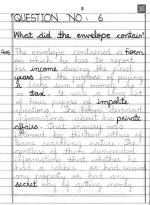 8
QUESTION NO: 6
What did the envelope contain?
Ans The envelope contained a form
on which he has to report
his income during the past
years for the purpose of paying
a large sum of money as
tax. It was a long list
of four pages of impolite
questions. The form demand
informations about his private
affairs. That inquiry was
followed by thirteen others of
same searching nature. The
questions of them demanded
informations that whether he
had a robber or had secured
any property or had any
secret way of getting money